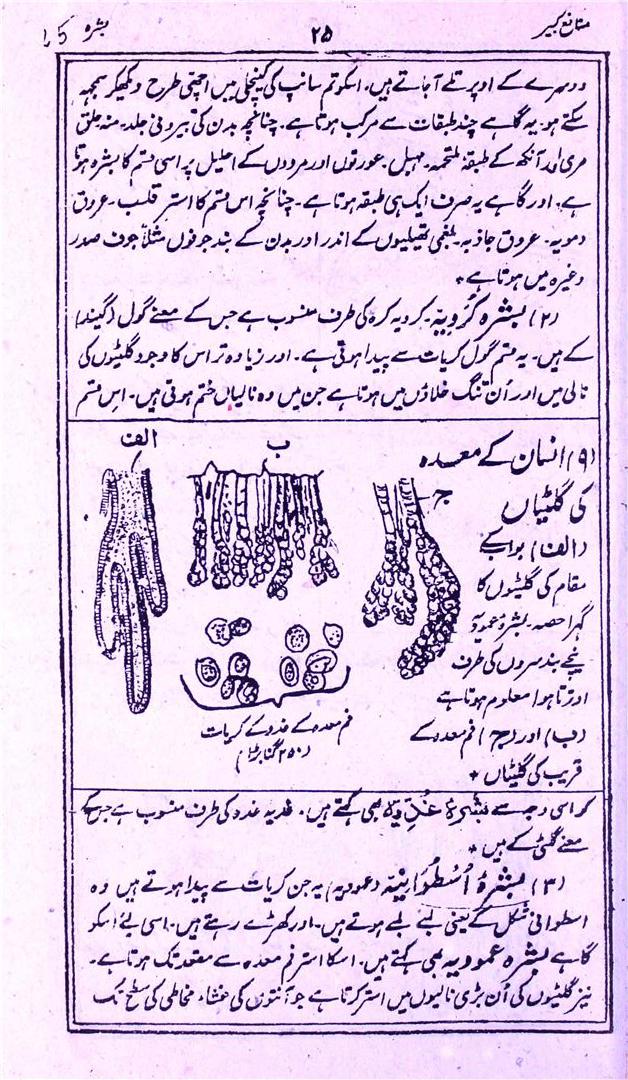 منافع کبیر ۲۵ بشرہ کا
دوسرے کے اوپر تلے آجاتے ہیں۔ اسکو تم سانپ کی کینچلی میں اچھی طرح دیکھکر سمجھ
سکتے ہو۔ یہ گاہے چند طبقات سے مرکب ہوتا ہے۔ چنانچہ بدن کی بیرونی جلد۔ منہ حلق
مری اور آنکھ کے طبقۂ ملتحمہ۔ مہبل۔ عورتوں اور مردوں کے احلیل پر اسی قسم کا بشرہ ہوتا
ہے۔ اور گاہے یہ صرف ایک ہی طبقہ ہوتا ہے۔ چنانچہ اس قسم کا استر قلب۔ عروق
دمویہ۔ عروق جاذبہ۔ بلغمی تھیلیوں کے اندر اور بدن کے بند جوفوں مثلاً جوف صدر
وغیرہ میں ہوتا ہے٭
(۲) بشرہ کُرَوِیَّہ۔ کرویہ کرہ کی طرف منسوب ہے جس کے معنے گول (گیند)
کے ہیں۔ یہ قسم گول کریات سے پیدا ہوتی ہے۔ اور زیادہ تر اس کا وجود گلٹیوں کی
نالی میں اور اُن تنگ خلاؤں میں ہوتا ہے جن میں وہ نالیاں ختم ہوتی ہیں۔ اس قسم
(۹) انسان کے معدہ
کی گلٹیاں
(الف) بواب کے
مقام کی گلٹیوں کا
گہرا حصہ۔ بشرۂ عمودیہ
نیچے بند سروں کی طرف
اترتا ہوا معلوم ہوتا ہے
(ب) اور (ج) فم معدہ کے
قریب کی گلٹیاں٭
ج
ب
الف
فم معدہ کے غدد کے کریات
(۲۵۰ گنا بڑا)
کو اسی وجہ سے بشرۂ غُدِّیہ بھی کہتے ہیں۔ غدیہ غدہ کی طرف منسوب ہے جس کے
معنے گلٹی کے ہیں٭
(۳) بشرۂ اُسْطُوَانِیَّہ (عمودیہ) یہ جن کریات سے پیدا ہوتے ہیں وہ
اسطوانی شکل کے یعنی لمبے لمبے ہوتے ہیں۔ اور کھڑے رہتے ہیں۔ اسی لئے اسکو
گاہے بشرہ عمودیہ بھی کہتے ہیں۔ اسکا استر فم معدہ سے مقعد تک ہوتا ہے۔
نیز گلٹیوں کی اُن بڑی نالیوں میں استر کرتا ہے جو آنتوں کی غشاء مخاطی کی سطح تک